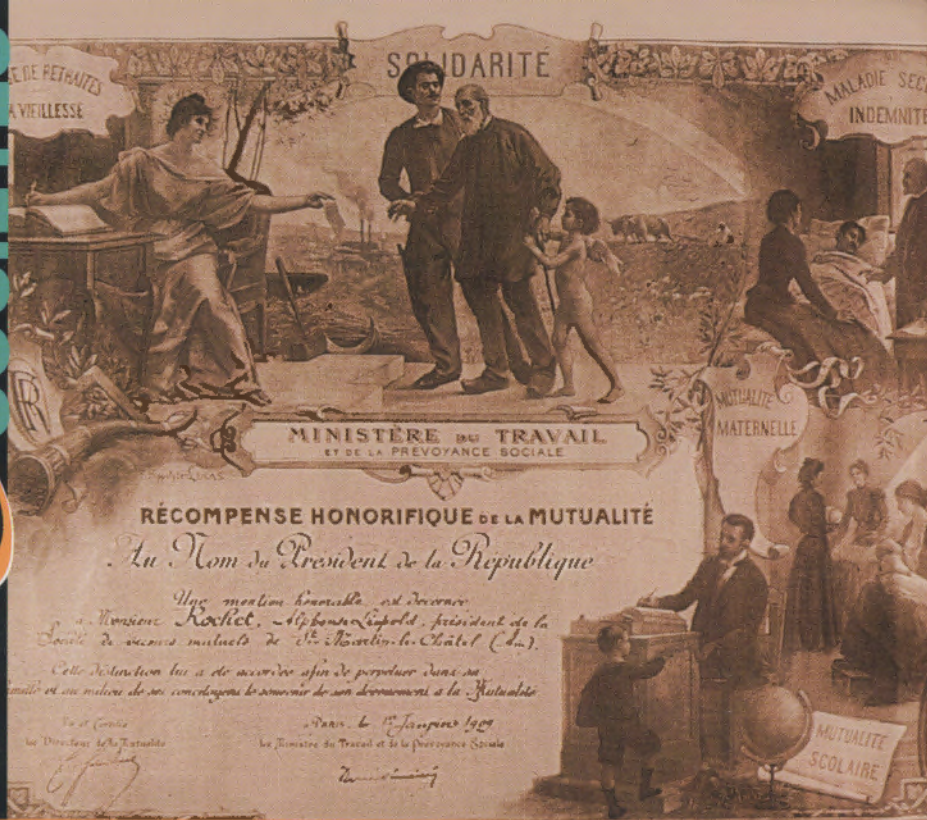 SOLIDARITÉ
E DE RETRAITES
A VIEILLESSE
MALADIE SEC
INDEMNITÉ
MUTUALITÉ
MATERNELLE
MINISTÈRE DU TRAVAIL
ET DE LA PRÉVOYANCE SOCIALE
LUCAS
RÉCOMPENSE HONORIFIQUE DE LA MUTUALITÉ
Au Nom du Président de la République
Une mention honorable est décernée
a Monsieur Rochet, Alphonse Léopold, président de la
Société de secours mutuels de St Martin-le-Châtel (Ain).
Cette distinction lui a été accordée afin de perpétuer dans sa
famille et au milieu de ses concitoyens le souvenir de son dévouement à la Mutualité
Paris, le 1er Janvier 1909
Le Directeur de la Mutualité
Le Ministre du Travail et de la Prévoyance Sociale
MUTUALITÉ
SCOLAIRE
RF